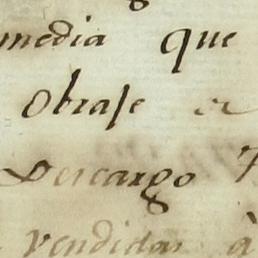 media que
obrase en
Descargo
vendidas à